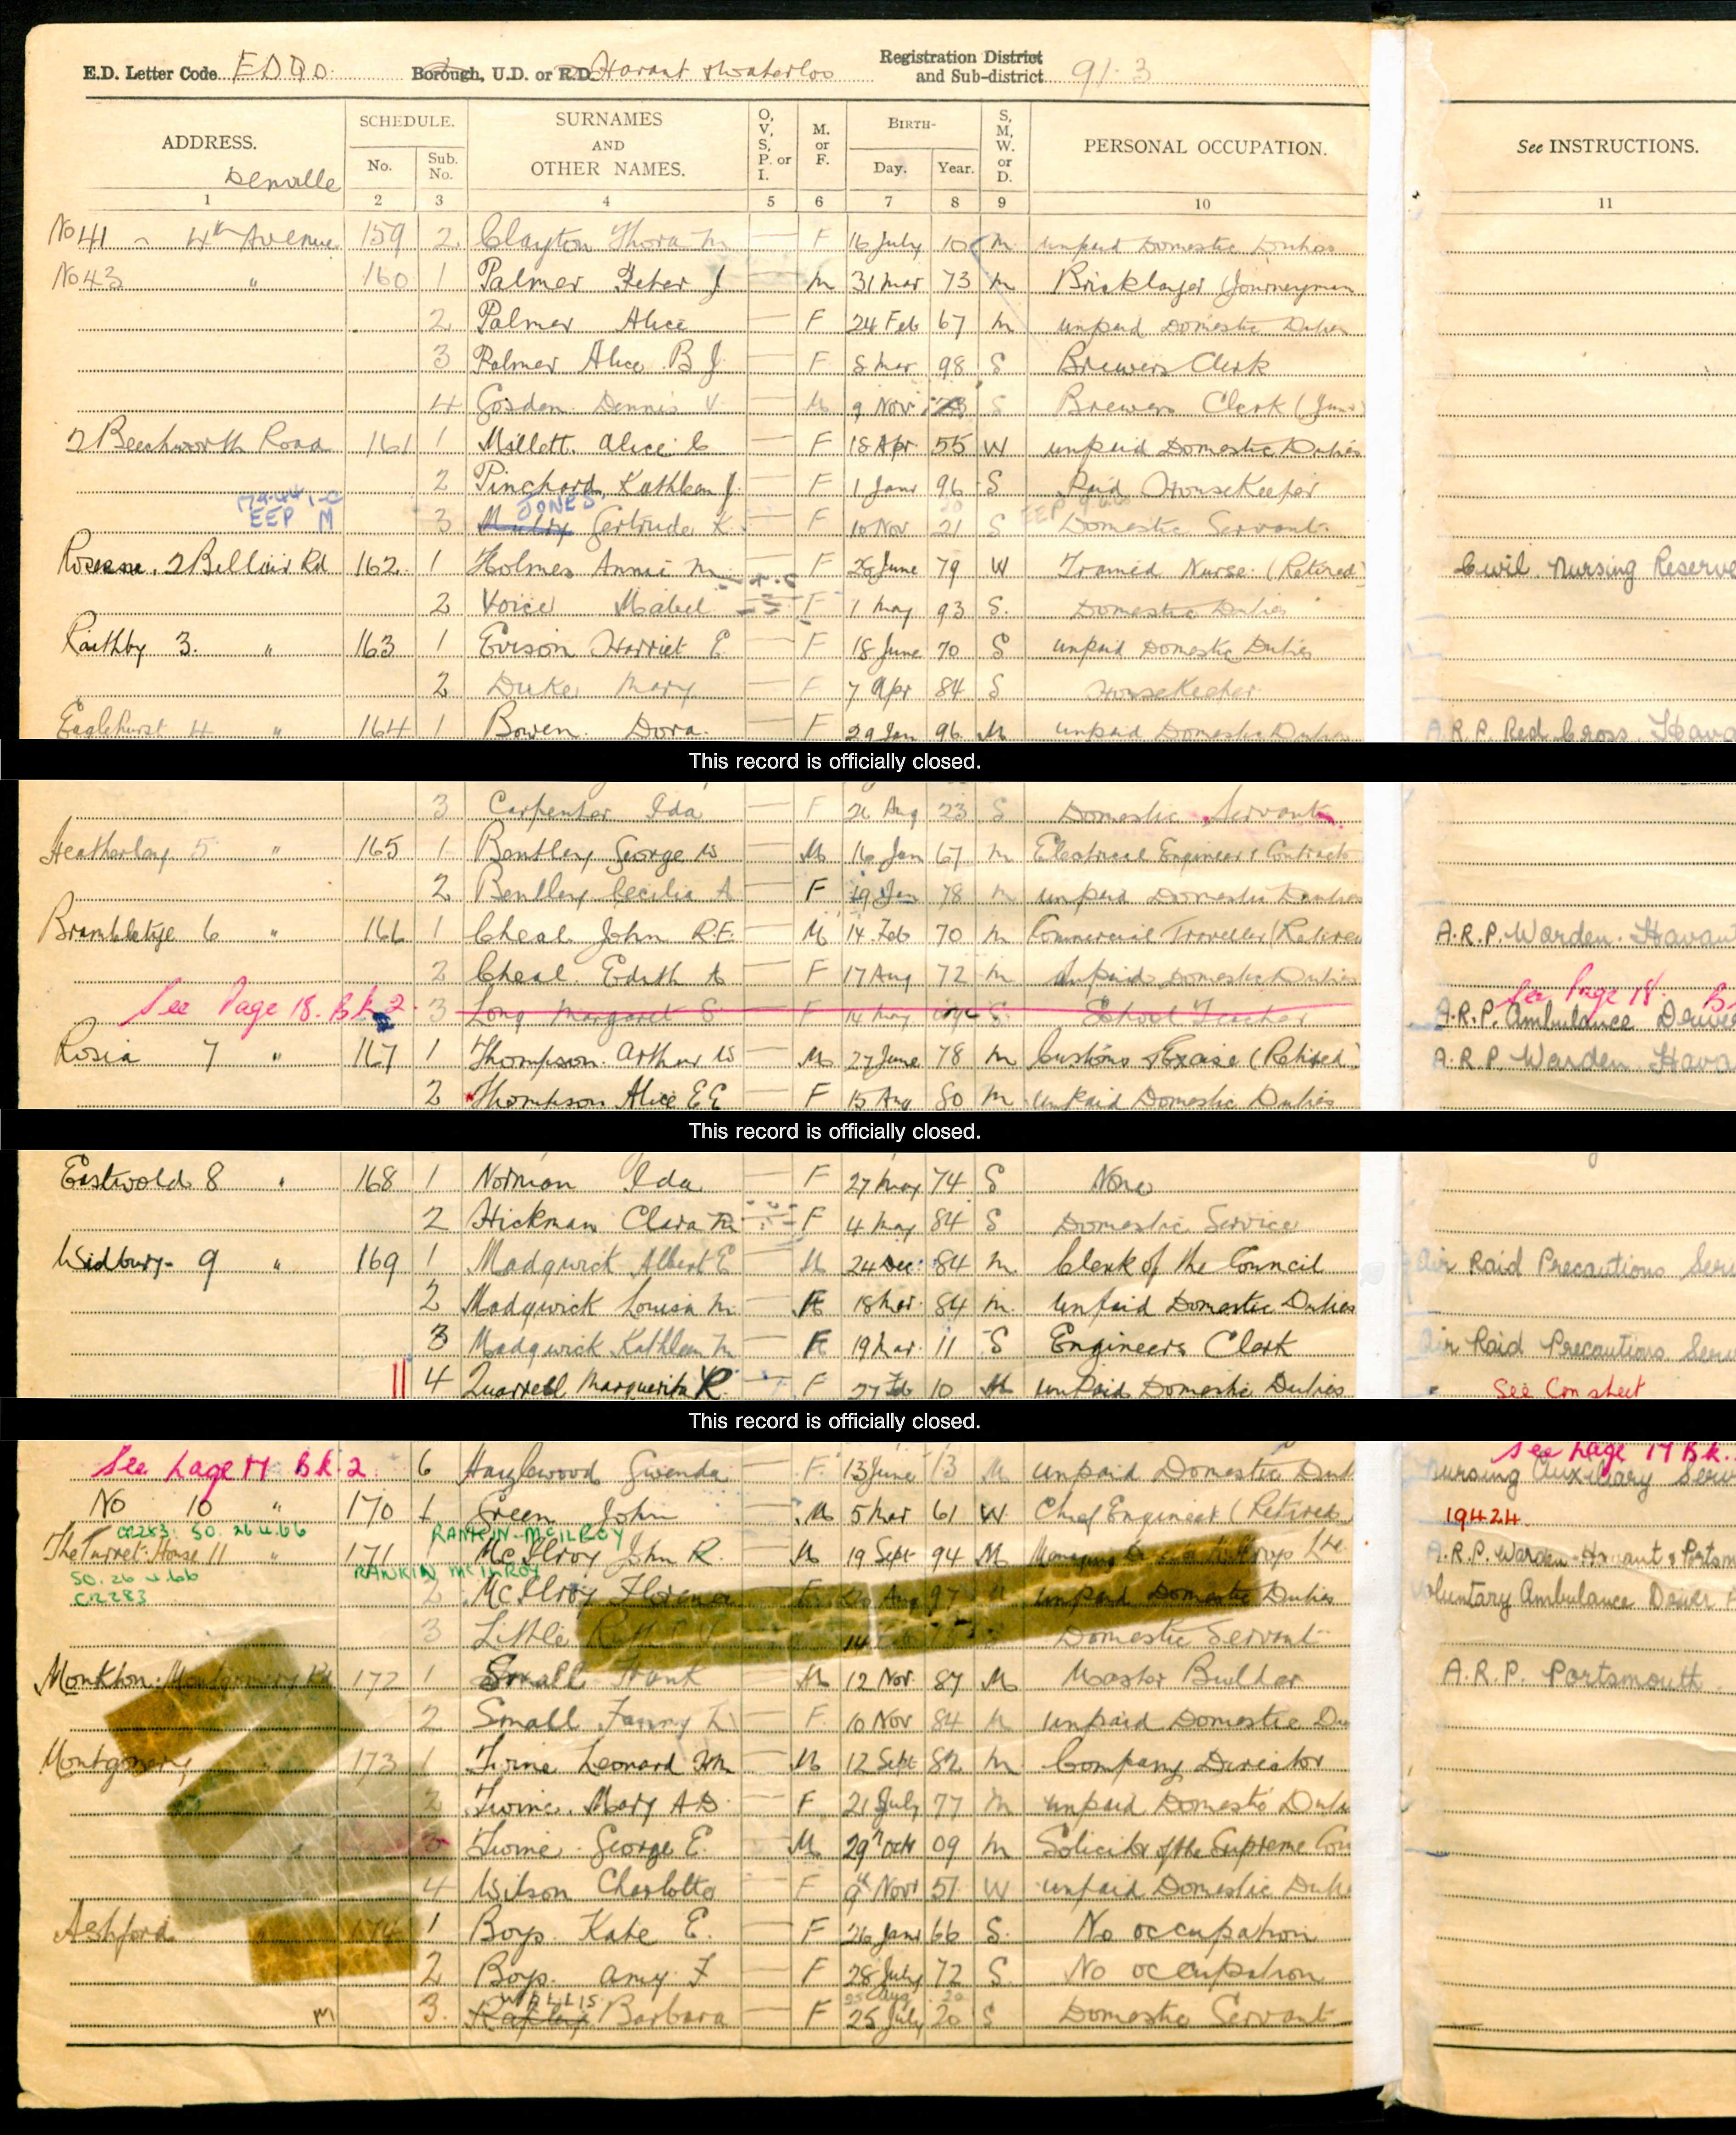 E.D. Letter Code EDQD. Borough, U.D. or R.D. Havant & Waterloo Registration District and Sub-district 91.3
ADDRESS. SCHEDULE. No. Sub. No. SURNAMES AND OTHER NAMES. O, V, S, P. or I. M. or F. BIRTH- Day. Year. S, M, W. or D. PERSONAL OCCUPATION. See INSTRUCTIONS.
Denville
1 2 3 4 5 6 7 8 9 10 11
No 41 - 4th Avenue 159 2 Clayton Thora M — F 16 July 10 M Unpaid Domestic Duties
No 43 " 160 1 Palmer Peter J — M 31 Mar 73 M Bricklayer (Journeyman
2 Palmer Alice — F 24 Feb 67 M Unpaid Domestic Duties
3 Palmer Alice B J. — F 8 Mar 98 S Brewers Clerk
4 Gosden Dennis V — M 9 Nov S Brewers Clerk (Jun
2 Beechworth Road 161 1 Millett. Alice C — F 18 Apr 55 W Unpaid Domestic Duties
2 Pinchard, Kathleen J. — F 1 Jany 96 S Paid Housekeeper
EEP M 3 JONES Gertrude K. — F 10 Nov 21 S Domestic Servant
2 Bellair Rd 162 1 Holmes Annie M — F 26 June 79 W Trained Nurse (Retired) Civil Nursing Reserve
2 Voice Mabel F 1 May 93 S. Domestic Duties
Raithby 3. " 163 1 Evison Harriet E — F 18 June 70 S Unpaid Domestic Duties
2 Duke Mary — F 7 Apr 84 S Housekeeper
Eaglehurst 4 " 164 1 Bowen Dora. — F 29 Jan 96 M Unpaid Domestic Duties A.R.P. Red Cross. Hava
This record is officially closed.
3 Carpenter Ida — F 26 Aug 23 S Domestic Servant
Heatherley 5 " 165 1 Bentley George W — M 16 Jan 67 M Electrical Engineer & Contract
2 Bentley Cecilia A — F 19 Jan 78 M Unpaid Domestic Duties
Brambletye 6 " 166 1 Cheal John R.F. — M 14 Feb 70 M Commercial Traveller (Retired A.R.P. Warden. Havant
2 Cheal Edith A — F 17 Aug 72 M Unpaid Domestic Duties
See Page 18. Bk 2. 3 Long Margaret S — F 14 May S School Teacher See Page 18. B
A.R.P. Ambulance Drive
Rosia 7 " 167 1 Thompson. Arthur W — M 27 June 78 M Customs & Excise (Retired) A.R.P. Warden Hava
2 Thompson Alice E E — F 15 Aug 80 M Unpaid Domestic Duties
This record is officially closed.
Eastwold 8 " 168 1 Norman Ida — F 27 May 74 S None
2 Hickman Clara M F 4 May 84 S Domestic Service
Widbury - 9 " 169 1 Madgwick Albert E — M 24 Dec 84 M Clerk of the Council Air Raid Precautions Serv
2 Madgwick Louisa M. — F 18 Mar 84 M. Unpaid Domestic Duties
3 Madgwick Kathleen M — F 19 Mar 11 S Engineers Clerk Air Raid Precautions Serv
4 Quarrell Marguerita R. — F 27 Feb 10 M Unpaid Domestic Duties See Con sheet
This record is officially closed.
See page 17 Bk 2 6 Hazlewood Gwenda — F. 13 June 13 M Unpaid Domestic Dut See page 17 Bk.
Nursing Auxiliary Serv
No 10 " 170 1 Green John — M 5 Mar 61 W Chief Engineer (Retired) 19424
CR283. SO. 26.4.66 RANKIN-MCILROY
The Turret House 11 " 171 McIlroy John R. — M 19 Sept 94 M Managing A.R.P. Warden - Havant & Portsm
SO. 26.4.66 RANKIN MCILROY
CR283 2 McIlroy Florence F Aug 97 Unpaid Domestic Duties Voluntary Ambulance Driver
3 Little 14 Domestic Servant
Monkton Montgomery Rd 172 1 Small Frank M 12 Nov 87 M Master Builder A.R.P. Portsmouth
2 Small Fanny L — F. 10 Nov 84 M Unpaid Domestic Du
Montgomery 173 1 Twine Leonard Wm — M 12 Sept 82 M Company Director
2 Twine. Mary A D. — F 21 July 77 M Unpaid Domestic Duti
3 Twine George E. — M 29th Oct 09 M Solicitor of the Supreme Cou
4 Wilson Charlotte — F 9th Nov 51 W Unpaid Domestic Duti
Ashford 174 1 Boys Kate E. — F 26 Jany 66 S. No occupation
2 Boys. Amy F — F 28 July 72 S No occupation
M 3. WALLIS Barbara — F 25 July 20 S Domestic Servant